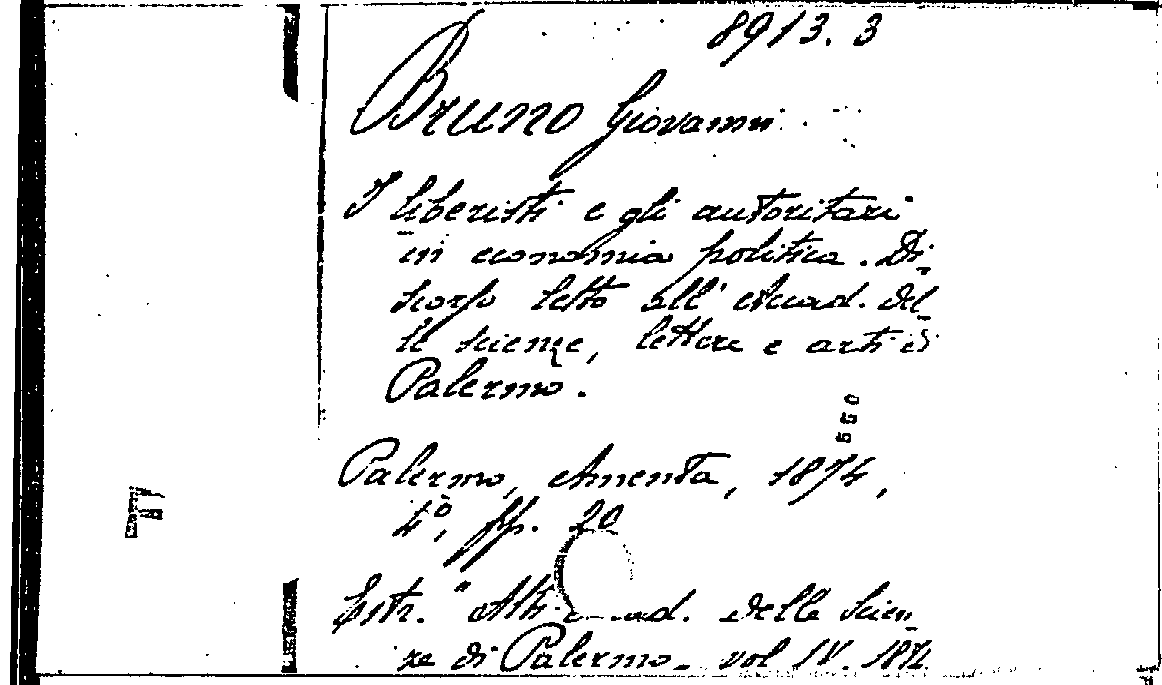 8913. 3
Bruno Giovanni
I liberisti e gli autoritari
in economia politica. Di-
scorso letto all' Accad. del-
le scienze, lettere e arti di
Palermo.
Palermo, Amenta, 1874,
4°, pp. 20
Estr. "Atti ad. delle Scien-
ze di Palermo - vol IV. 1874